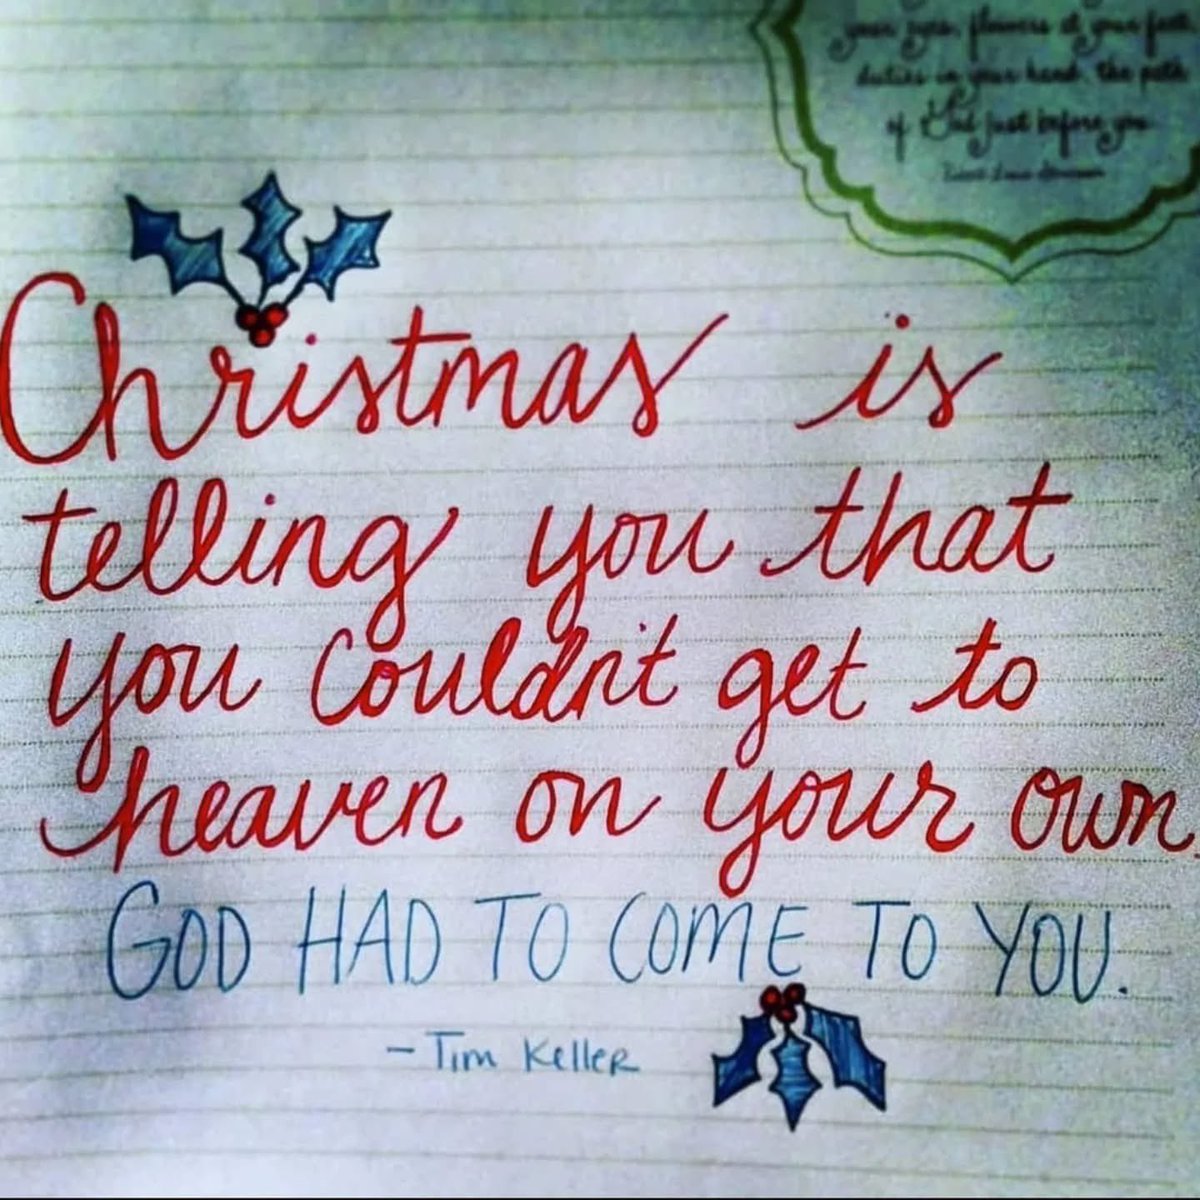 your eyes, flowers at your feet,
duties in your hand, the path
of God just before you
Christmas is
telling you that
you couldn't get to
heaven on your own.
GOD HAD TO COME TO YOU.
- Tim Keller